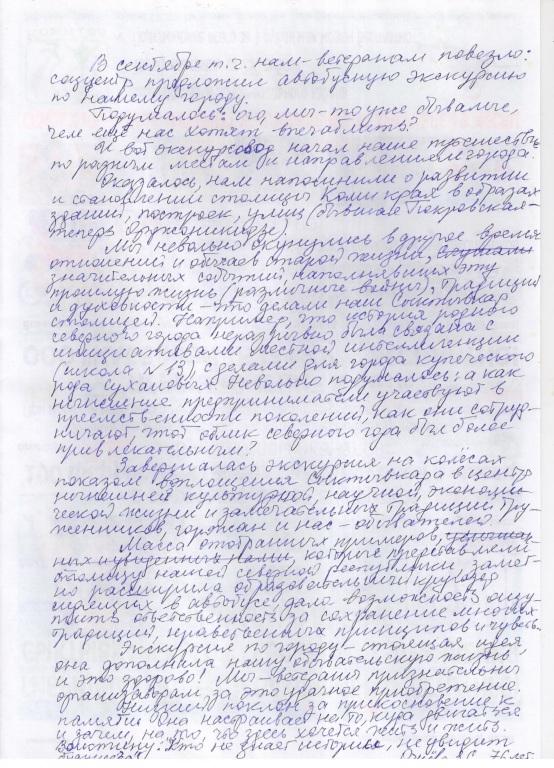 В сентябре т.г. нам-ветеранам повезло:
соццентр предложил автобусную экскурсию
по нашему городу.
Подумалось: ого, мы-то уже бывалые,
чем ещё нас хотят впечатлить?
И вот экскурсовод начал наше путешествие
по разным местам и направлениям города.
Оказалось, нам напомнили о развитии
и становлении столицы Коми края в образах
зданий, построек, улиц (бывшая Покровская-
теперь Орджоникидзе).
Мы невольно окунулись в другое время
отношений и обычаев старой жизни,
значительных событий, наполнявших эту
прошлую жизнь (различные войны), традиций
и духовности - это делали наш Сыктывкар
столицей. Например, что история родного
северного города неразрывно была связана с
инициативами местной интеллигенции
(школа № 13), с делами для города купеческого
рода Сухановых. Невольно подумалось: а как
нынешние предприниматели участвуют в
преемственности поколений, как они сотруд-
ничают, чтоб облик северного города был более
привлекательным?
Завершилась экскурсия на колёсах
показом воплощения Сыктывкара в центр
нынешней культурной, научной, экономи-
ческой жизни и замечательных традиций тру-
жеников, горожан и нас - обывателей.
Масса отобранных примеров,
которые представляли
столицу нашей северной республики, замет-
но расширила образовательный кругозор
сидящих в автобусе, дала возможность ощу-
тить ответственность за сохранение многих
традиций, нравственных принципов и чувств.
Экскурсия по городу - стоящая идея,
она дополнила нашу обывательскую жизнь,
и это здорово! Мы - ветераны признательны
организаторам за это удачное приобретение.
Низкий поклон за прикосновение к
памяти. Она настраивает не то, куда двигаться
и зачем, на то, что здесь хочется жить и жить.
Кто не знает истории, не увидит
76 лет